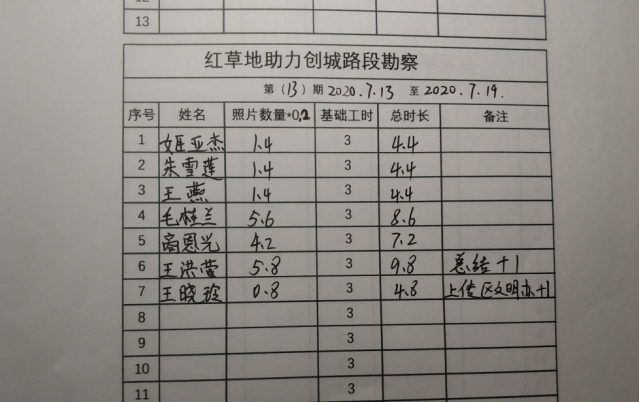 12
13
红草地助力创城路段勘察
第(13)期2020.7.13 至2020.7.19.
序号 姓名 照片数量*0.2 基础工时 总时长 备注
1 姬亚杰 1.4 3 4.4
2 朱雪莲 1.4 3 4.4
3 王燕 1.4 3 4.4
4 毛桂兰 5.6 3 8.6
5 高恩光 4.2 3 7.2
6 王洪莹 5.8 3 9.8 总结+1
7 王晓玲 0.8 3 4.8 上传区文明办+1
8 3
9 3
10 3
11 3